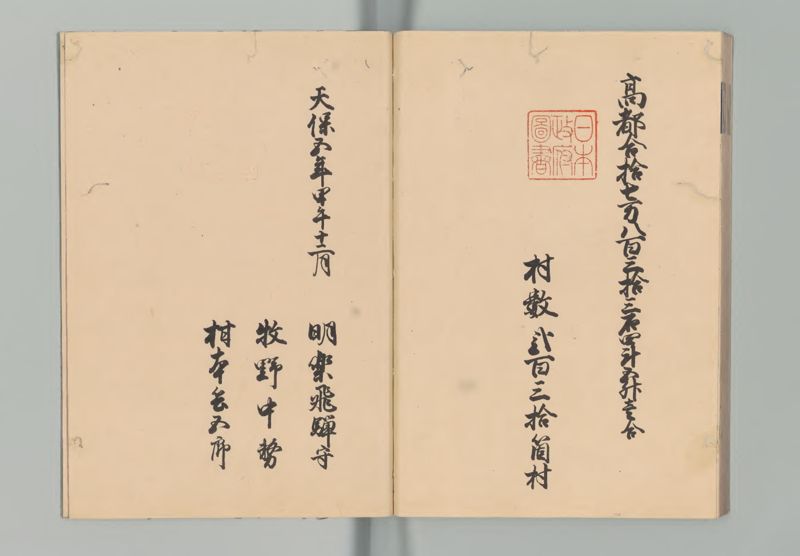 高都合拾七万八百三拾三石四斗五升壱合
日本
政府
圖書
村數貳百三拾箇村
天保五年甲午十二月
明樂飛驒守
牧野中務
村本五郎